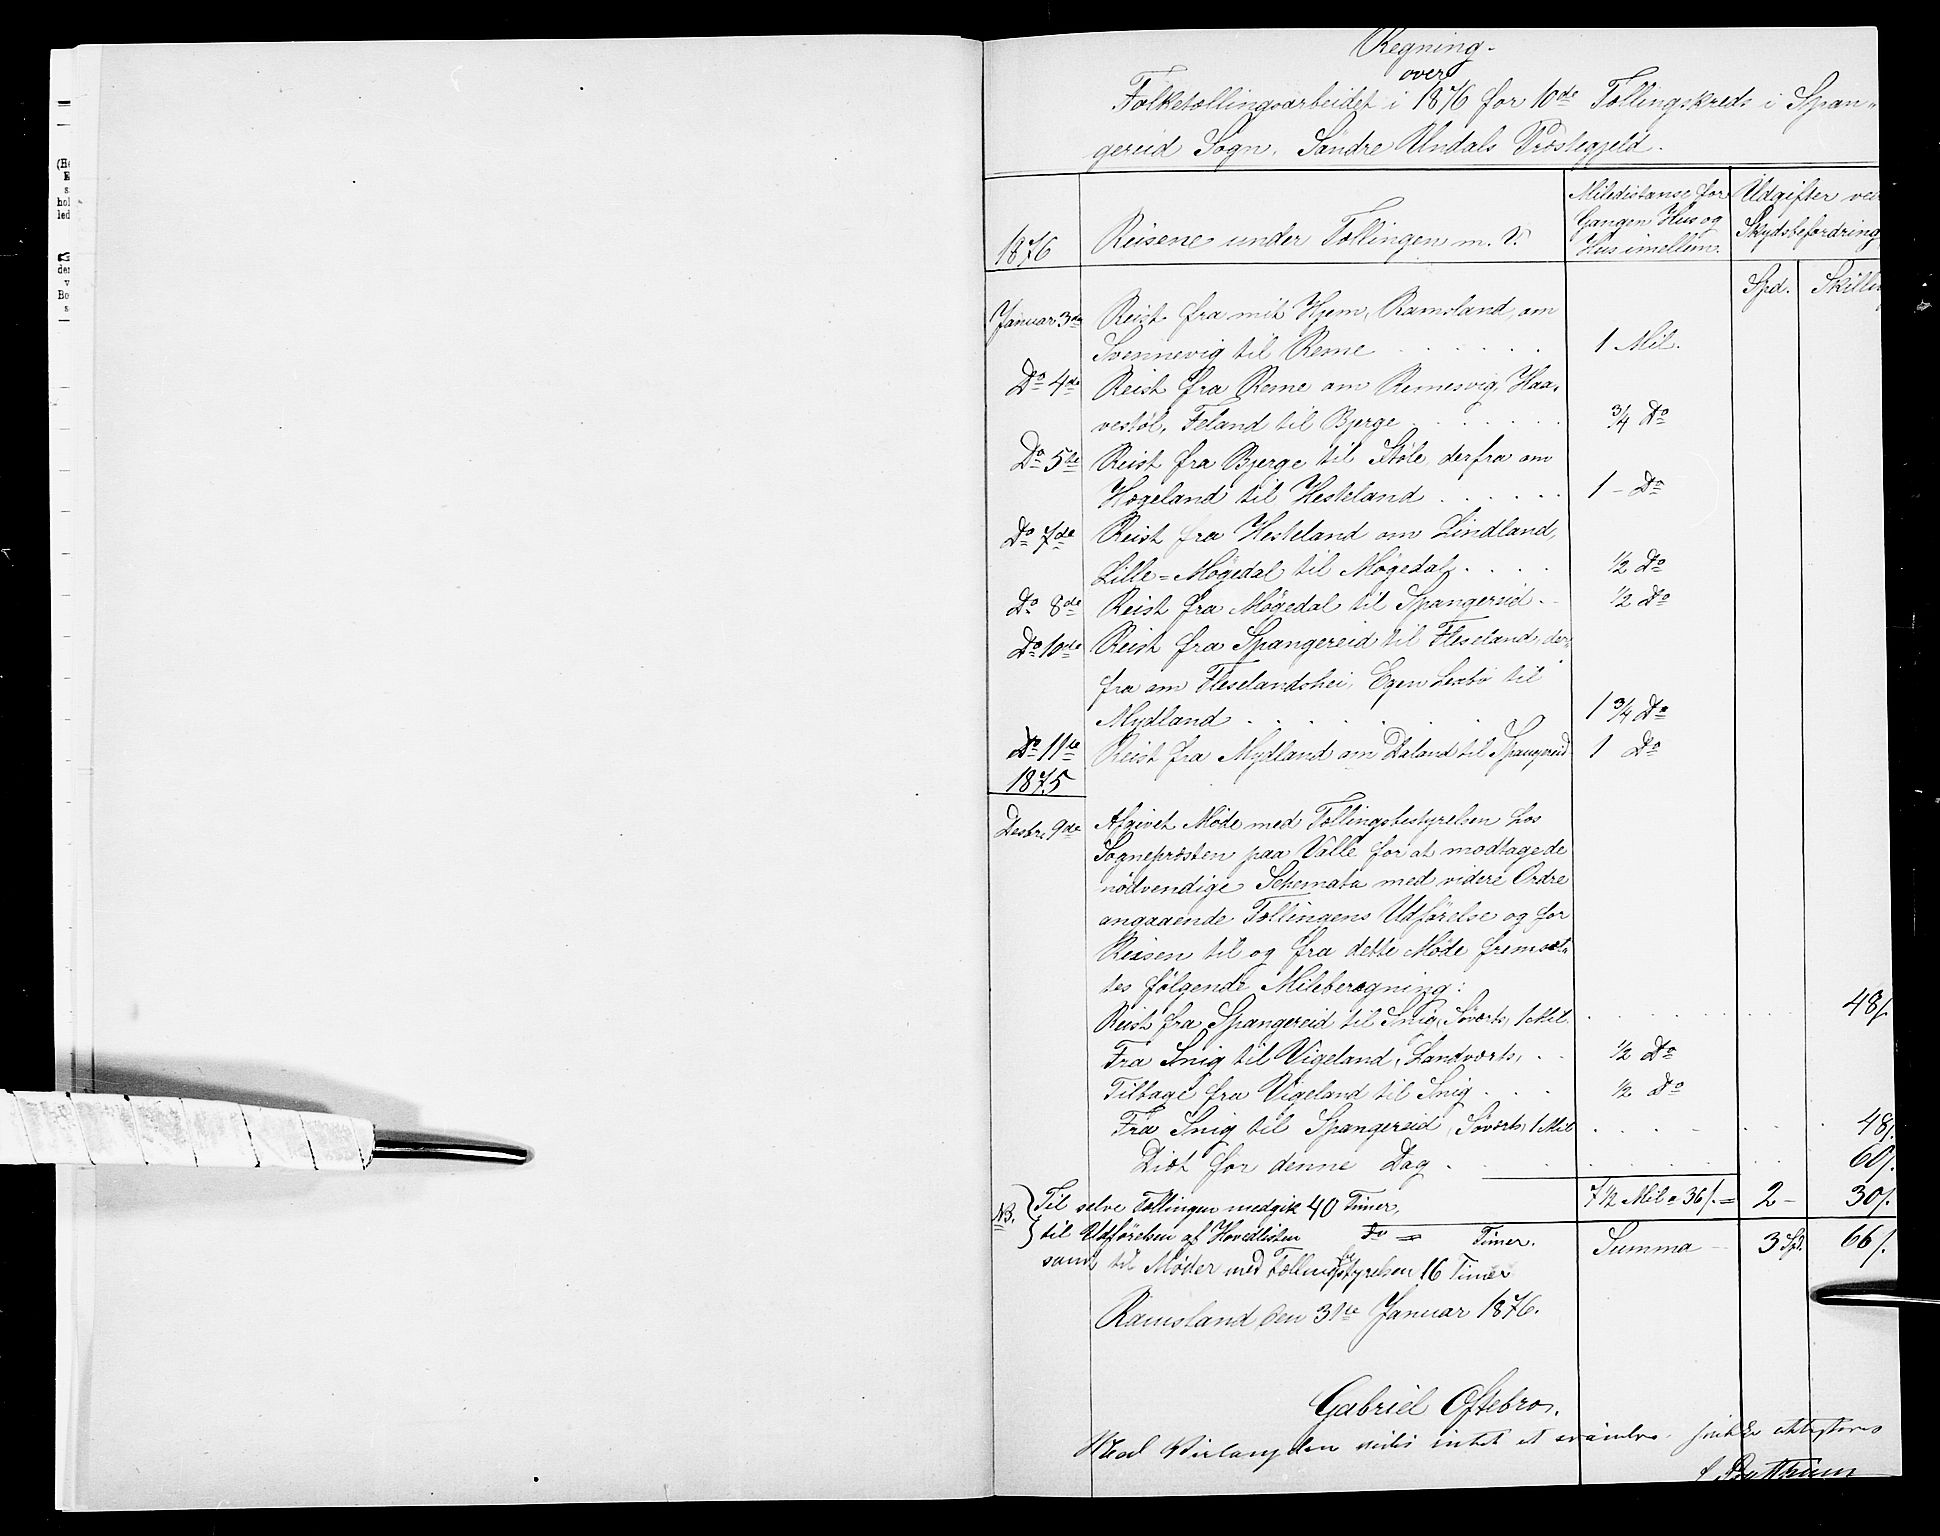 Regning
over
Folketællingsarbeidet i 1876 for 10de Tællingskreds i Span-
gereid Sogn, Söndre Undals Præstegjeld.
1876 Reisene under Tællingen m. V. Miledistanse for Gangen Hus og Hus imellem. Udgifter ved Skydsbefordring
Spd. Skilling
Januar 3die Reist fra mit Hjem, Ramsland, om
Svennevig til Reme . . . . . . 1 Mil.
Do 4de Reist fra Reme om Remesvig, Haa-
vestöl, Feland til Bjerge . . . . . . 3/4 Do
Do 5te Reist fra Bjerge til Støle, derfra om
Høgeland til Hesteland . . . . . . 1 - Do
Do 7de Reist fra Hesteland om Lindland,
Lille-Møgedal til Møgedal . . . . 1/2 Do
Do 8de Reist fra Møgedal til Spangereid . - 1/2 Do
Do 10de Reist fra Spangereid til Fleseland, der-
fra om Fleselandshei, Egen Lexbø til
Mydland . . . . . . 1 3/4 Do
Do 11te Reist fra Mydland om Daland til Spangereid 1 Do
1875
Desbr. 9de Afgivet Møde med Tællingsbestyrelsen hos
Sognepræsten paa Valle for at modtage de
nödvendige Schemata med videre Ordre
angaaende Tællingens Udførelse og for
Reisen til og fra dette Møde fremsæt-
tes følgende Mileberegning:
Reist fra Spangereid til Snig, Søværts, 1 Mil. . . . . . 48/.
Fra Snig til Vigeland, Landværts, . - 1/2 Do
Tilbage fra Vigeland til Snig . . . 1/2 Do
Fra Snig til Spangereid, Søværts, 1 Mil . . . . . 48/.
Diæt for denne Dag . . . . . . 60/.
NB. Til selve Tællingen medgik 40 Timer, 7 1/2 Mil a 36/. = 2 - 30/.
til Udførelsen af Hovedlisten Do = Timer. Summa - 3 Spd. 66/.
samt til Møder med Tællingsbestyrelsen 16 Timer
Ramsland den 31te Januar 1876.
Gabriel Oftebro.
Med intet at